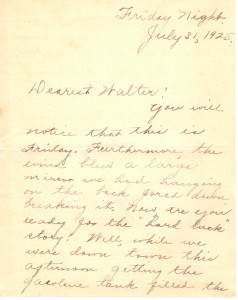 Friday Night
July 31, 1925.
Dearest Walter!
You will
notice that this is
Friday. Furthermore the
wind blew a large
mirror we had hanging
on the back porch down,
breaking it. Now are you
ready for the "hard luck"
story? Well, while we
were down town this
afternoon getting the
gasolene tank filled the